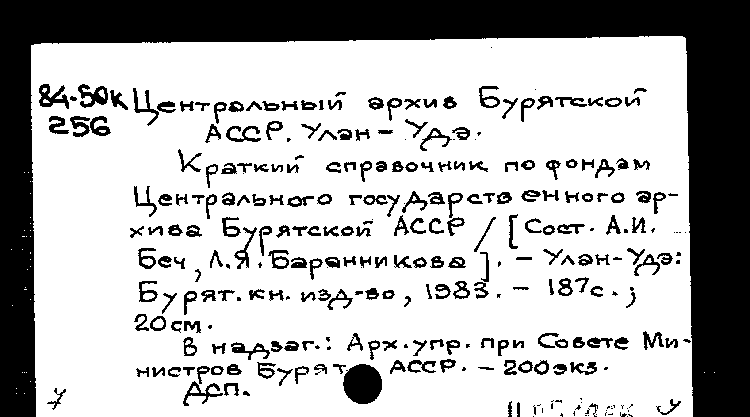 84-50к Центральный архив Бурятской
256 АССР. Улан-Удэ.
Краткий справочник по фондам
Центрального государственного ар-
хива Бурятской АССР / [Сост. А.И.
Беч, Л.Я. Баранникова]. - Улан-Удэ:
Бурят. кн. изд-во, 1983. - 187с.;
20см.
В надзаг.: Арх. упр. при Совете Ми-
нистров Бурят АССР. - 200экз.
ДСП.